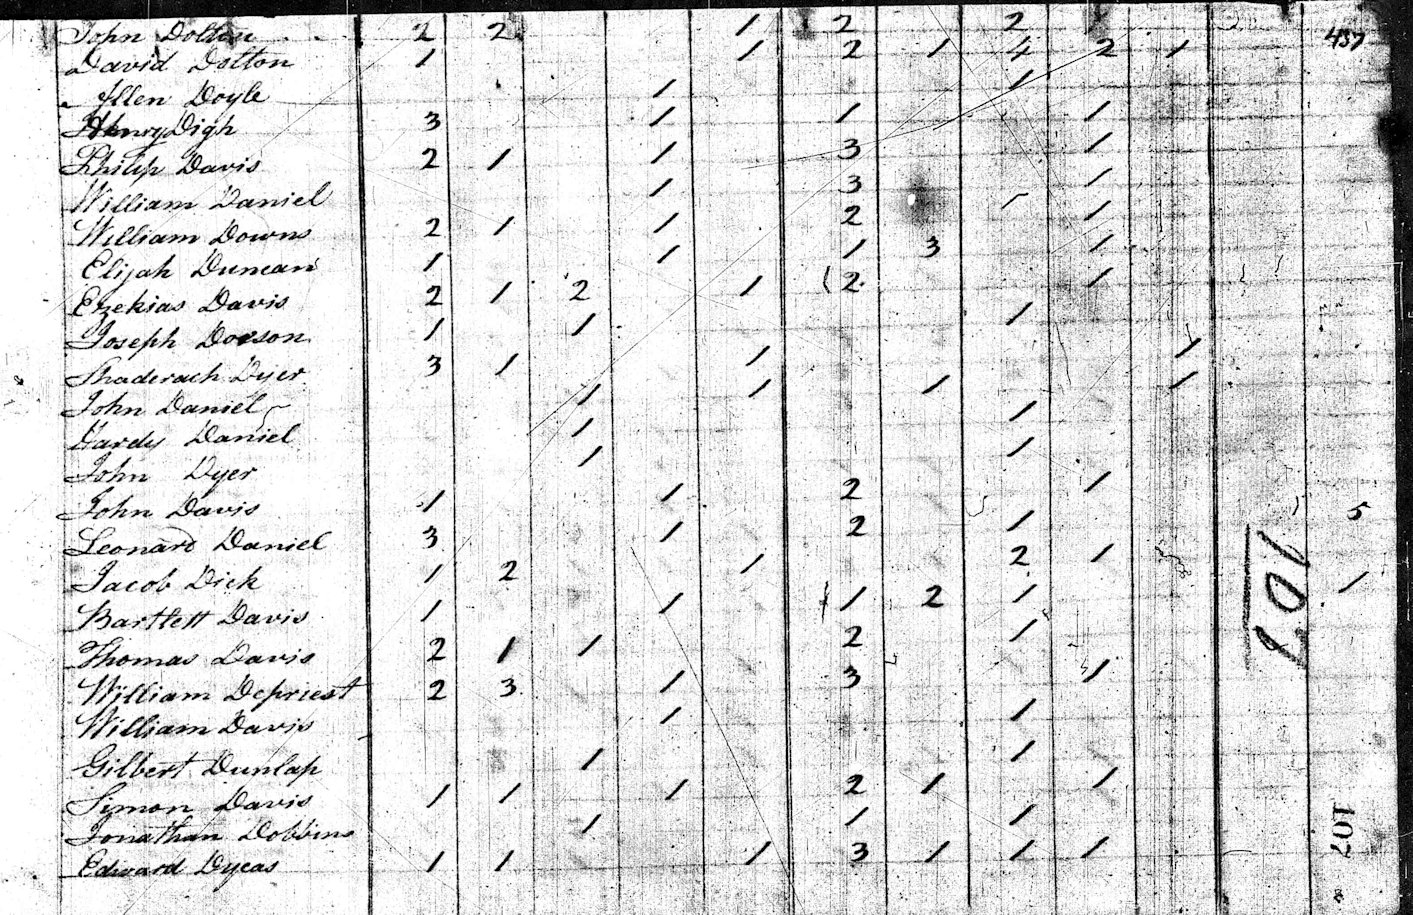 John Dolton 2 2 1 2 2 1 437
David Dolton 1 1 2 1 4 2 1
Allen Doyle 1 1
Henry Digh 3 1 1 1
Philip Davis 2 1 1 3 1
William Daniel 1 3 1
William Downs 2 1 1 2 1
Elijah Duncan 1 1 1 3 1
Ezekias Davis 2 1 2 1 2 1
Joseph Dorson 1 1 1
Shaderach Dyer 3 1 1 1
John Daniel 1 1 1 1
Hardy Daniel 1 1
John Dyer 1 1
John Davis 1 1 2 1
Leonard Daniel 3 1 2 1 5
Jacob Dick 1 2 1 2 1
Bartlett Davis 1 1 1 2 1 1
Thomas Davis 2 1 1 2 1
William Depriest 2 3 1 3 1
William Davis 1 1
Gilbert Dunlap 1 1
Simon Davis 1 1 1 2 1 1
Jonathan Dobbins 1 1 1
Edward Dycas 1 1 1 3 1 1 1
107
107